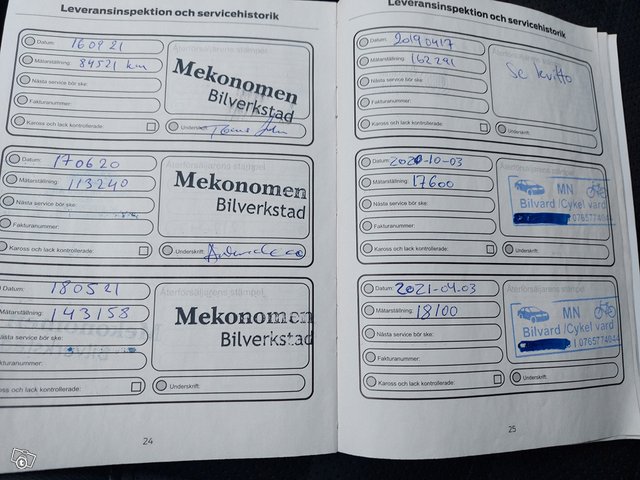 Leveransinspektion och servicehistorik
Datum: 160921
Mätarställning: 84521 km
Nästa service bör ske:
Fakturanummer:
Kaross och lack kontrollerade:
Återförsäljarens stämpel
Mekonomen
Bilverkstad
Underskrift:
Datum: 170620
Mätarställning: 113240
Nästa service bör ske:
Fakturanummer:
Kaross och lack kontrollerade:
Återförsäljarens stämpel
Mekonomen
Bilverkstad
Underskrift:
180521
Mätarställning: 143158
Nästa service bör ske:
Fakturanummer:
oss och lack kontrollerade:
Återförsäljarens stämpel
Mekonomen
Bilverkstad
Underskrift:
24
Leveransinspektion och servicehistorik
Datum: 20190417
Mätarställning: 162291
Nästa service bör ske:
Fakturanummer:
Kaross och lack kontrollerade:
Återförsäljarens stämpel
Se kvitto
Underskrift:
Datum: 2020-10-03
Mätarställning: 17600
Nästa service bör ske:
Fakturanummer:
Kaross och lack kontrollerade:
Återförsäljarens stämpel
MN
Bilvard /Cykel vard
Underskrift:
Datum: 2021-04.03
Mätarställning: 18100
Nästa service bör ske:
Fakturanummer:
Kaross och lack kontrollerade:
Återförsäljarens stämpel
MN
Bilvard /Cykel vard
Underskrift:
25